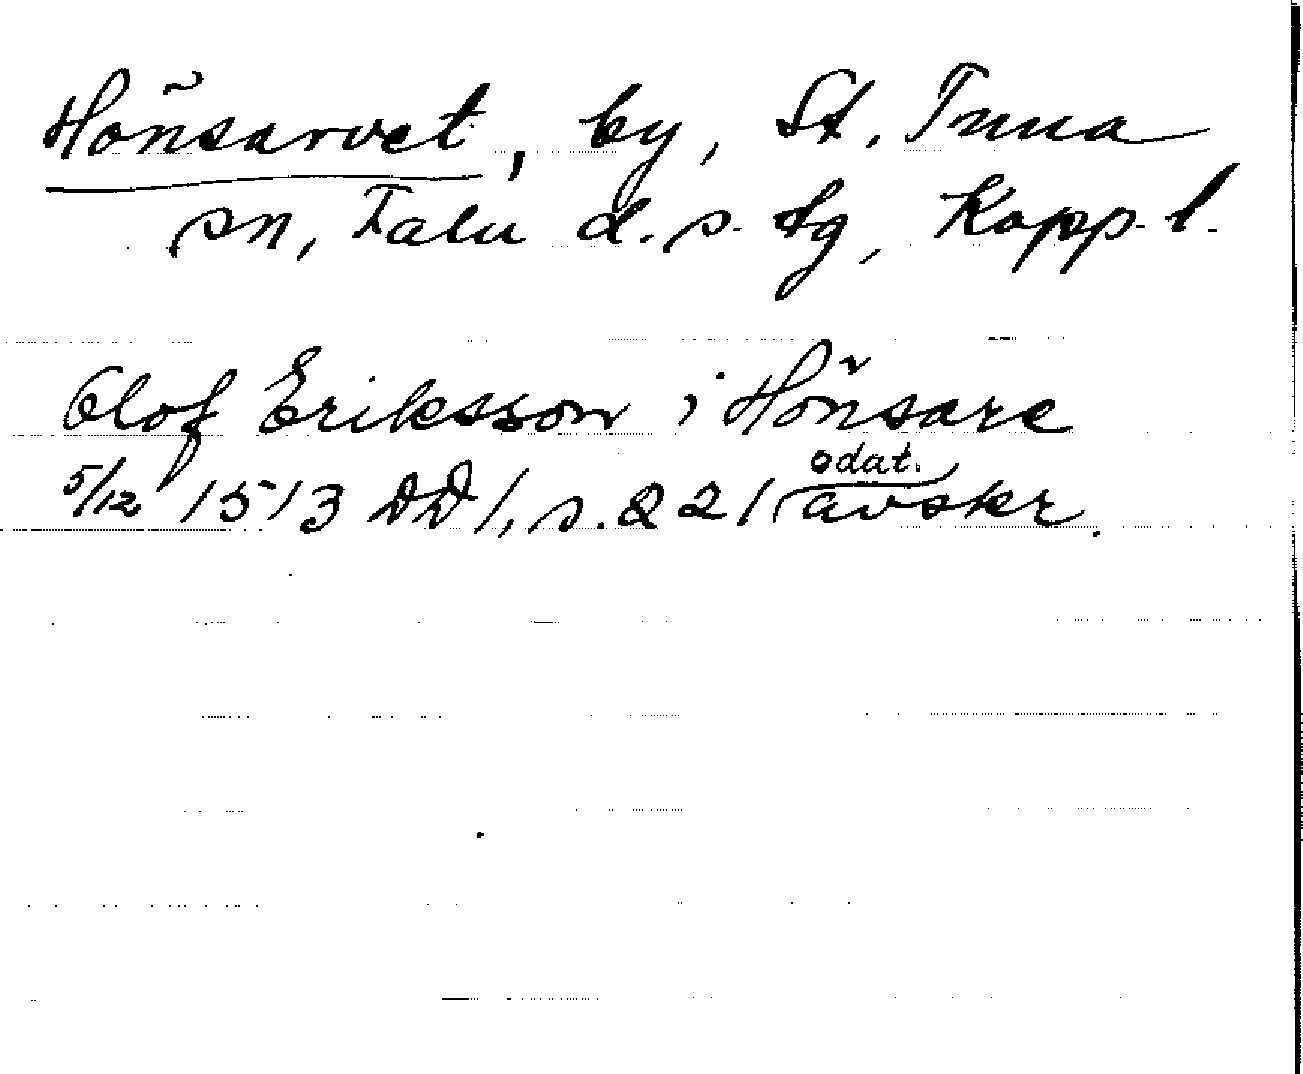 Hönsarvet, by, St. Tuna
sn, Falu d.s. tg, Kopp. l.
Olof Eriksson i Hönsare
5/12 1513 DD 1, s. 221 odat. avskr.